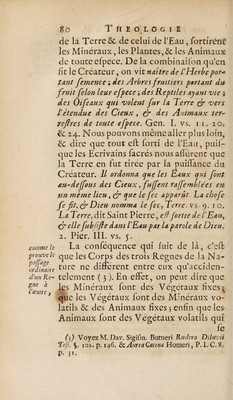 80 THEOLOGIE
de la Terre & de celui de l'Eau, sortirent
les Minéraux, les Plantes, & les Animaux
de toute espece. De la combinaison qu'en
fit le Créateur, on vit naître de l'Herbe por-
tant semence; des Arbres fruitiers portant du
fruit selon leur espece; des Reptiles ayant vie;
des Oiseaux qui volent sur la Terre & vers
l'étendue des Cieux, & des Animaux ter-
restres de toute espece. Gen. I. vs. 11. 20.
& 24. Nous pouvons même aller plus loin,
& dire que tout est sorti de l'Eau, puis-
que les Ecrivains sacrés nous assurent que
la Terre en fut tirée par la puissance du
Créateur. Il ordonna que les Eaux qui sont
au-dessous des Cieux, fussent rassemblées en
un même lieu, & que le sec apparût. La chose
se fit, & Dieu nomma le sec, Terre. vs. 9. 10.
La Terre, dit Saint Pierre, est sortie de l'Eau,
& elle subsiste dans l'Eau par la parole de Dieu.
2. Pier. III. vs. 5.
La conséquence qui suit de là, c'est
que les Corps des trois Regnes de la Na-
ture ne différent entre eux qu'acciden-
tellement (3). En effet, on peut dire que
les Minéraux sont des Végétaux fixes,
que les Végétaux sont des Minéraux vo-
latils & des Animaux fixes; enfin que les
Animaux sont des Végétaux volatils qui
se
comme le
prouve le
passage
ordinaire
d'un Re-
gne à
l'autre,
(3) Voyez M. Dav. Sigism. Butneri Rudera Diluvii
Test. §. 102. p. 146. & Aurea Catena Homeri, P. I. C. 8.
p. 31.